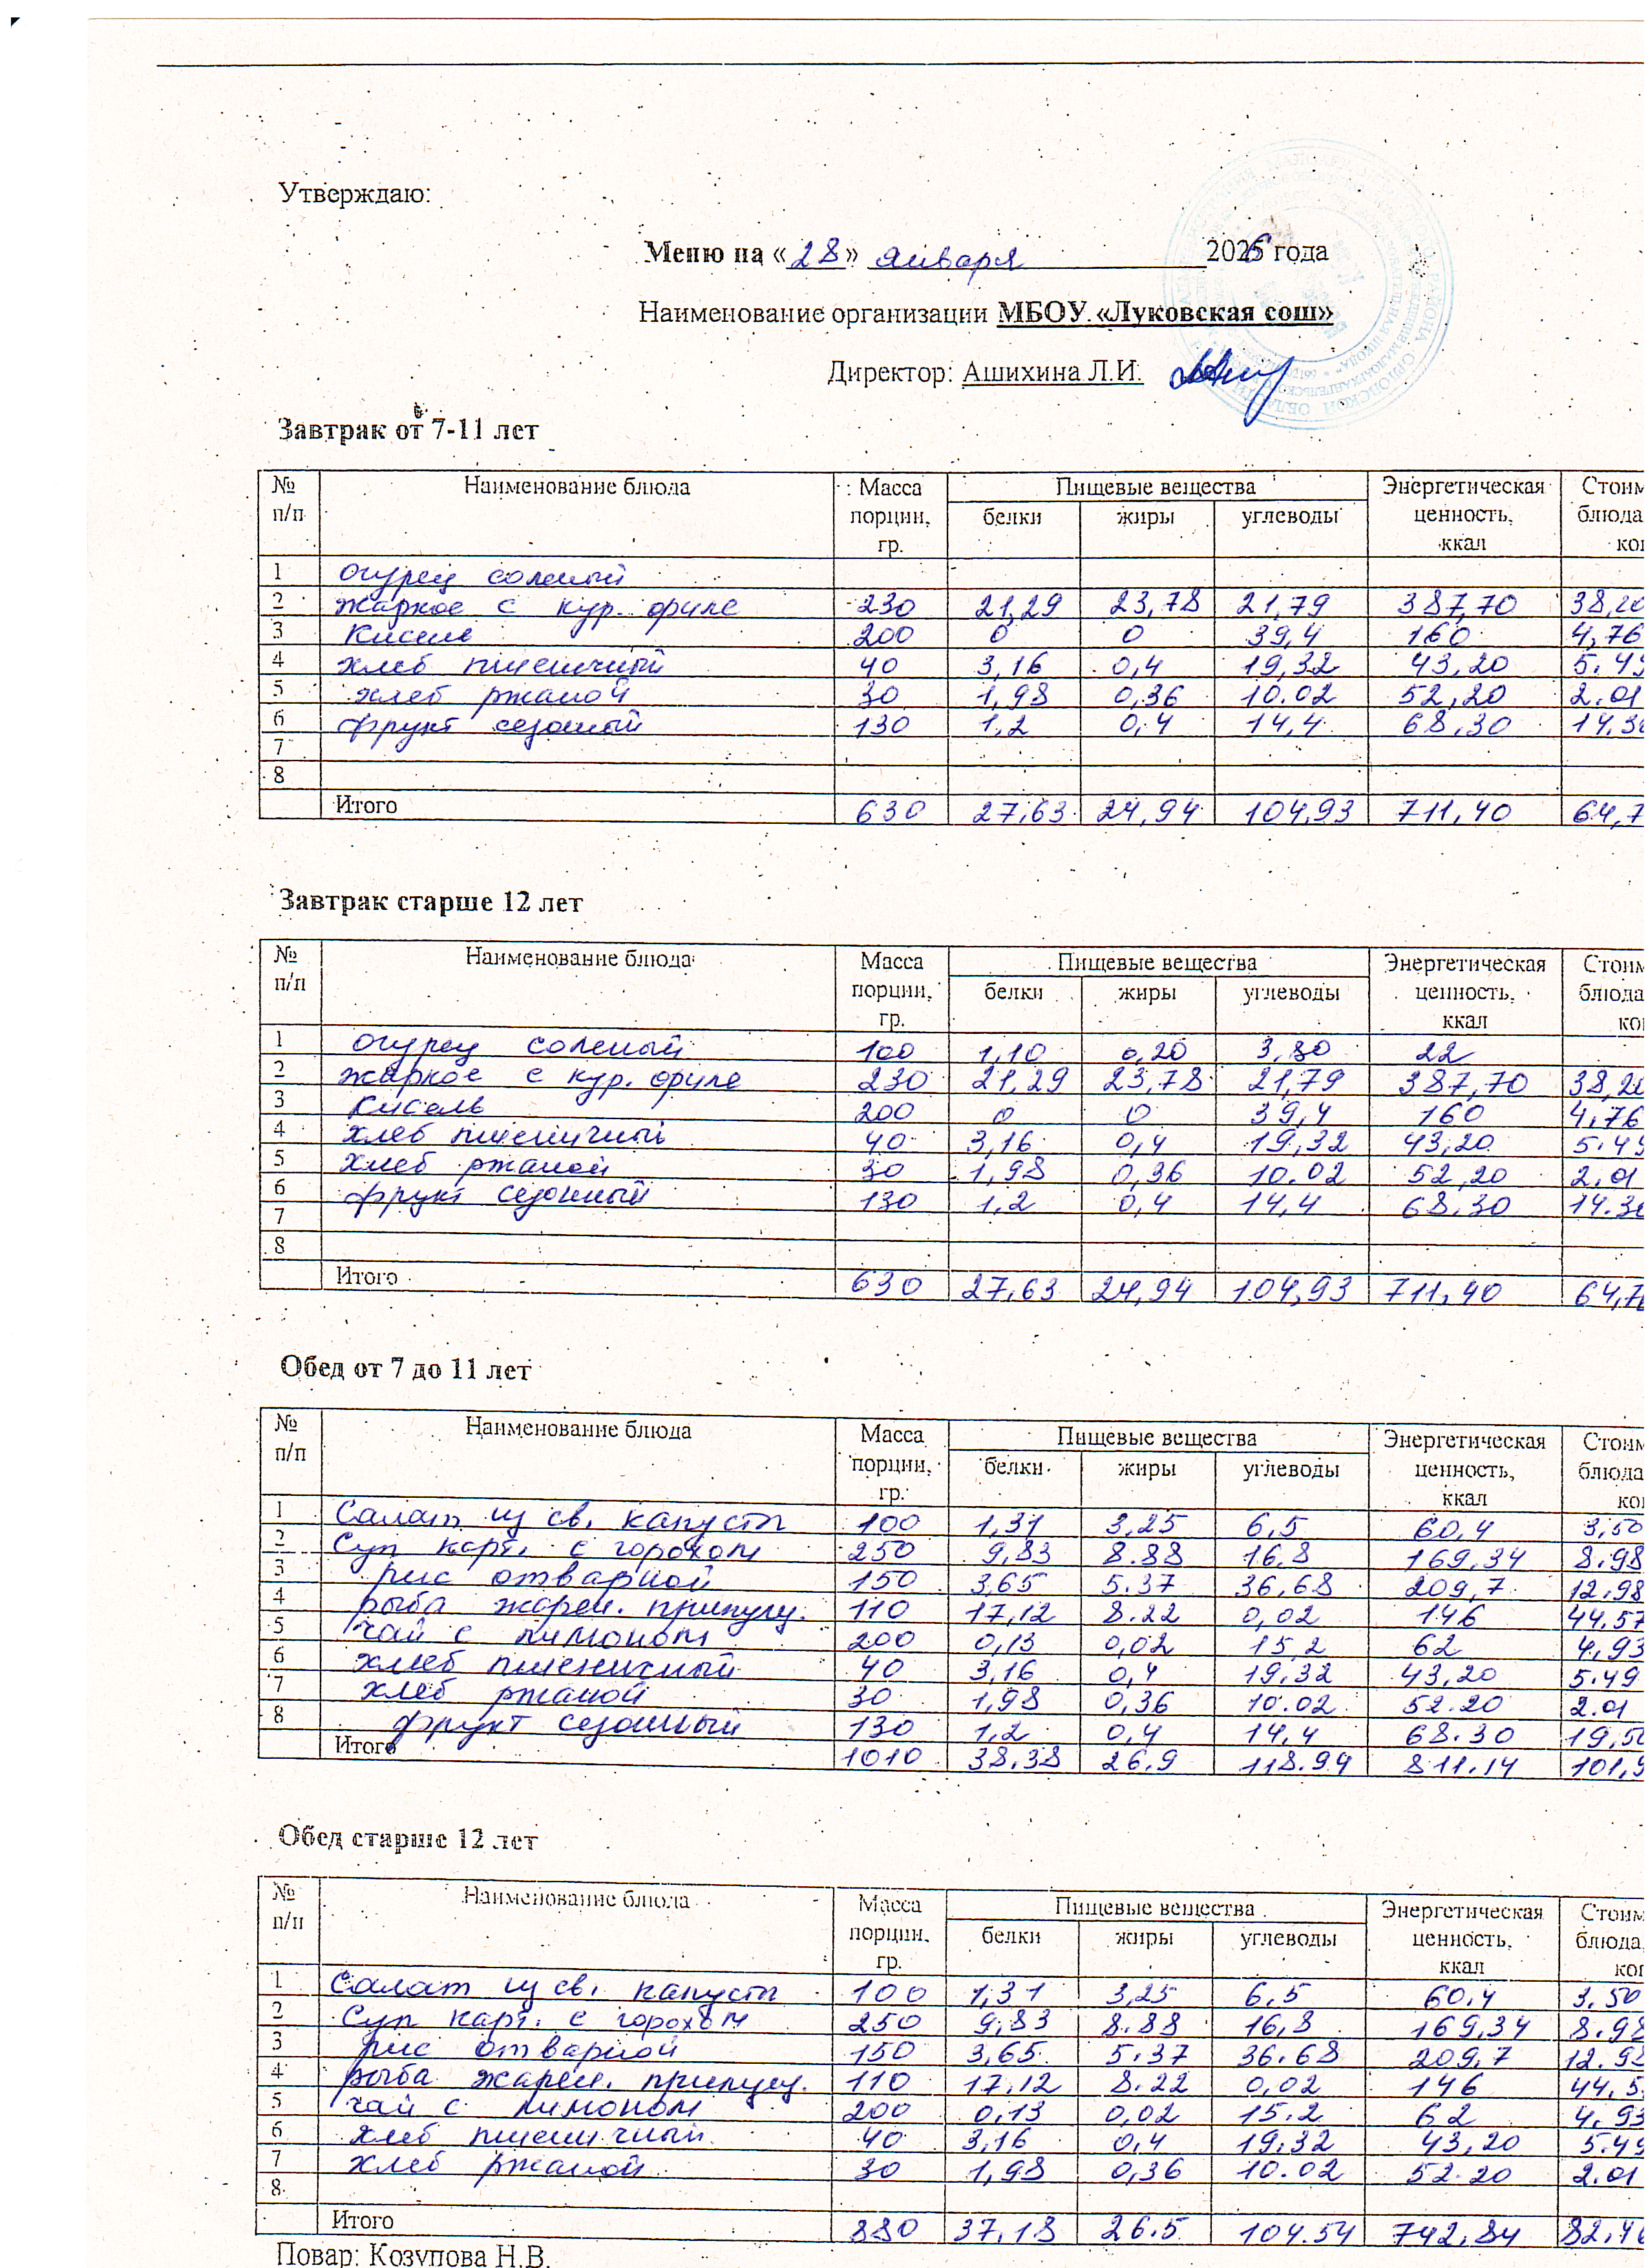 Утверждаю:
Меню на «28» января 2026 года
Наименование организации МБОУ «Луковская сош»
Директор: Ашихина Л.И.
Завтрак от 7-11 лет
№ п/п Наименование блюда Масса порции, гр. Пищевые вещества Энергетическая ценность, ккал Стоим блюда
белки жиры углеводы
1 огурец соленый
2 жаркое с кур. филе 230 21,29 23,78 21,79 387,70 38,20
3 Кисель 200 0 0 39,4 160 4,76
4 хлеб пшеничный 40 3,16 0,4 19,32 43,20 5.49
5 хлеб ржаной 30 1,98 0,36 10.02 52,20 2.01
6 фрукт сезонный 130 1,2 0,4 14,4 68,30 14,30
7
8
Итого 630 27,63 24,94 104,93 711,40 64,7
Завтрак старше 12 лет
№ п/п Наименование блюда Масса порции, гр. Пищевые вещества Энергетическая ценность, ккал Стоим блюда
белки жиры углеводы
1 огурец соленый 100 1,10 0,20 3,80 22
2 жаркое с кур. филе 230 21,29 23,78 21,79 387,70 38,20
3 Кисель 200 0 0 39,4 160 4,76
4 хлеб пшеничный 40 3,16 0,4 19,32 43,20 5.49
5 хлеб ржаной 30 1,98 0,36 10.02 52,20 2,01
6 фрукт сезонный 130 1,2 0,4 14,4 68,30 14.30
7
8
Итого 630 27,63 24,94 104,93 711,40 64,7
Обед от 7 до 11 лет
№ п/п Наименование блюда Масса порции, гр. Пищевые вещества Энергетическая ценность, ккал Стоим блюда
белки жиры углеводы
1 Салат из св. капусты 100 1,31 3,25 6,5 60,4 3,50
2 Суп карт. с горохом 250 9,83 8.88 16,8 169,34 8.98
3 рис отварной 150 3,65 5.37 36,68 209,7 12,98
4 рыба жарен. припущ. 110 17,12 8.22 0,02 146 44,57
5 чай с лимоном 200 0,13 0,02 15,2 62 4,93
6 хлеб пшеничный 40 3,16 0,4 19,32 43,20 5.49
7 хлеб ржаной 30 1,98 0,36 10.02 52.20 2.01
8 фрукт сезонный 130 1,2 0,4 14,4 68.30 19,50
Итого 1010 38.38 26.9 118.94 811.14 101,9
Обед старше 12 лет
№ п/п Наименование блюда Масса порции, гр. Пищевые вещества Энергетическая ценность, ккал Стоим блюда,
белки жиры углеводы
1 Салат из св. капусты 100 1,31 3,25 6,5 60,4 3,50
2 Суп карт. с горохом 250 9,83 8.88 16,8 169,34 8.98
3 рис отварной 150 3,65 5.37 36.68 209,7 12.98
4 рыба жарен. припущ. 110 17,12 8.22 0,02 146 44,5
5 чай с лимоном 200 0,13 0,02 15.2 62 4,93
6 хлеб пшеничный 40 3,16 0,4 19,32 43,20 5.49
7 хлеб ржаной 30 1,98 0,36 10.02 52.20 2.01
8
Итого 880 37,18 26.5 104.54 742,84 82,46
Повар: Козупова Н.В.